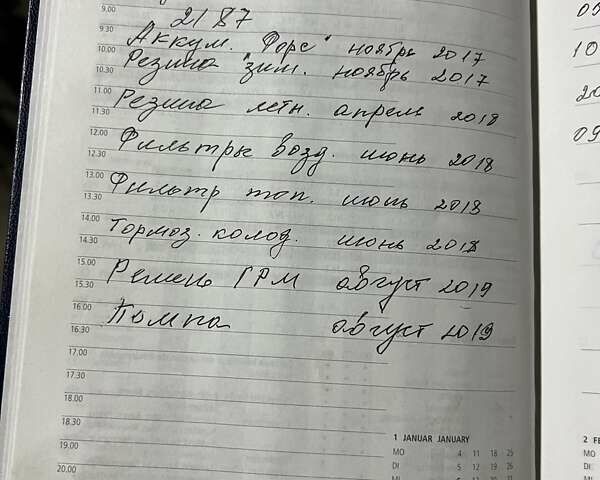 9.00
2187
Аккум. "Форс" ноябрь 2017
10.00
Резина "зим. ноябрь 2017
10.30
11.00
Резина летн. апрель 2018
11.30
12.00
Фильтры возд. июнь 2018
12.30
13.00
Фильтр топ. июнь 2018
13.30
14.00
Тормоз. колод. июнь 2018
14.30
15.00
Ремень ГРМ август 2019
15.30
16.00
Помпа август 2019
16.30
17.00
17.30
18.00
18.30
19.00
20.00
1 JANUAR JANUARY
MO 4 11 18 25
DI 5 12 19 26
09
10
20
09
2 FE
MO
DI